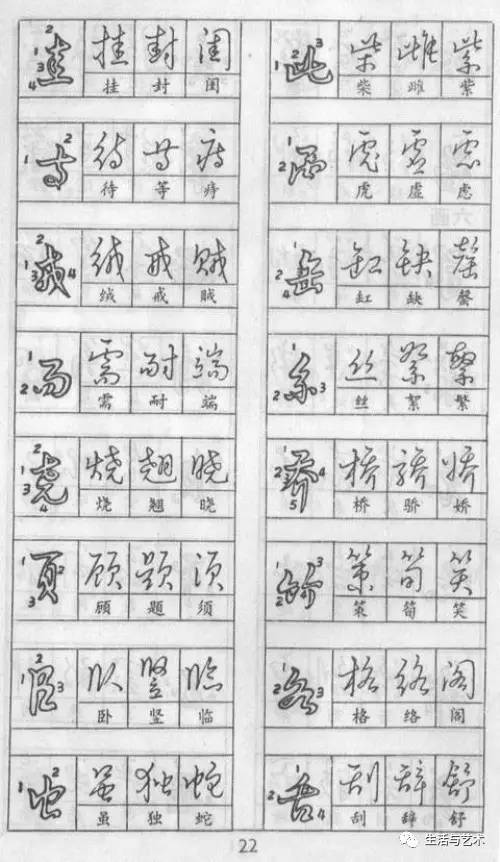 圭 挂 封 闺
挂 封 闺
寺 待 等 痔
待 等 痔
戎 绒 戒 贼
绒 戒 贼
而 需 耐 端
需 耐 端
尧 烧 翘 晓
烧 翘 晓
页 顾 题 须
顾 题 须
臣 卧 竖 临
卧 竖 临
虫 虽 独 蛇
虽 独 蛇
此 柴 雌 紫
柴 雌 紫
虍 虎 虚 虑
虎 虚 虑
缶 缸 缺 罄
缸 缺 罄
糸 丝 絮 繁
丝 絮 繁
乔 桥 骄 娇
桥 骄 娇
竹 策 筍 笑
策 筍 笑
各 格 络 阁
格 络 阁
舌 刮 辞 舒
刮 辞 舒
22
生活与艺术